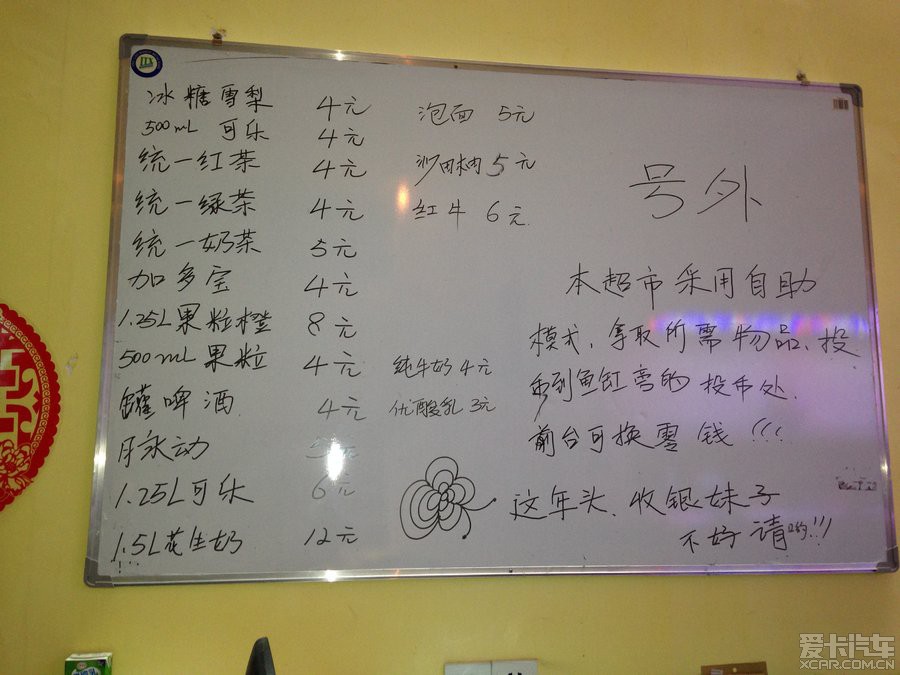 冰糖雪梨 4元
500mL 可乐 4元
统一红茶 4元
统一绿茶 4元
统一奶茶 5元
加多宝 4元
1.25L果粒橙 8元
500mL果粒 4元
罐啤酒 4元
脉动 5元
1.25L可乐 6元
1.5L花生奶 12元
泡面 5元
沙田柚 5元
红牛 6元
纯牛奶 4元
优酸乳 3元
号外
本超市采用自助
模式,拿取所需物品、投
币到鱼缸旁的投币处.
前台可换零钱!!!
这年头、收银妹子
不好请哟!!!
爱卡汽车
XCAR.COM.CN